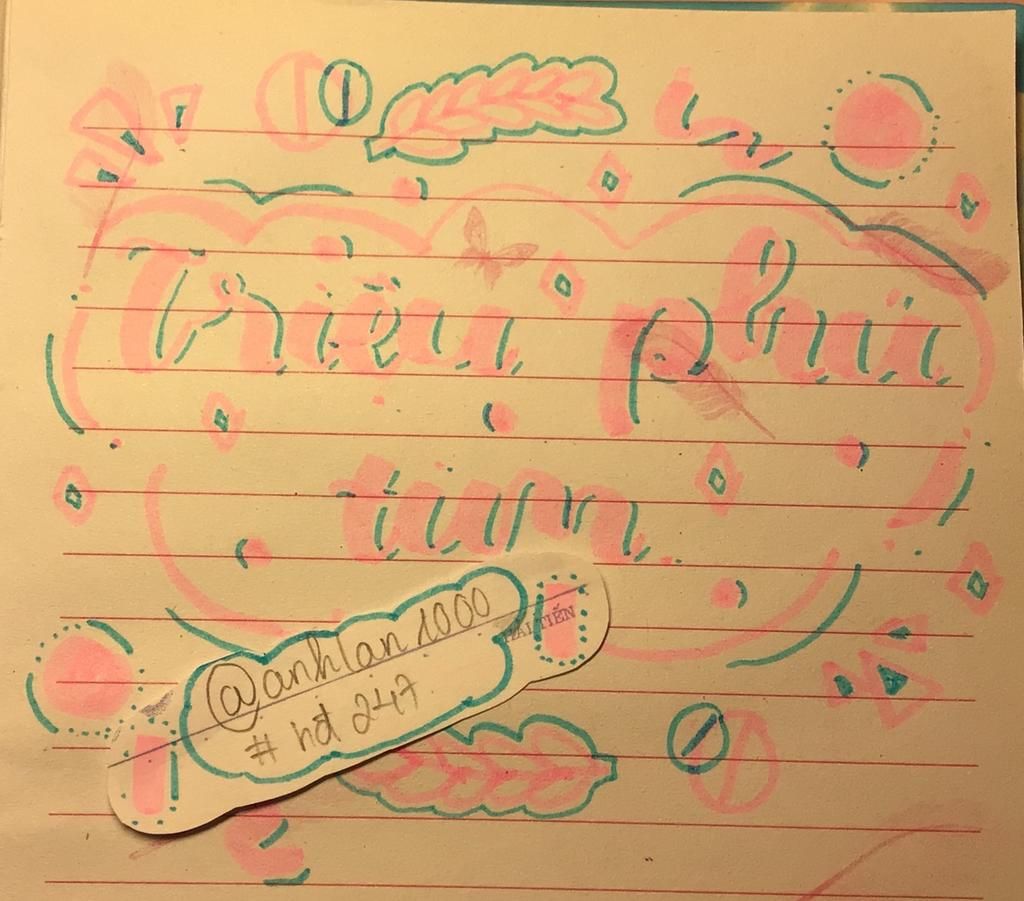 Triệu phú
tim
@anhlan1000
HẢI TIẾN
# hđ 247